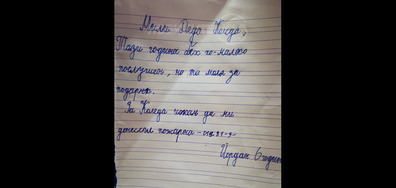 Мили Дядо Коледа,
Тази година бях по-малко
послушен, но те моля за
подарък.
За Коледа искам да ми
донесеш пожарна
Йордан 6 годин